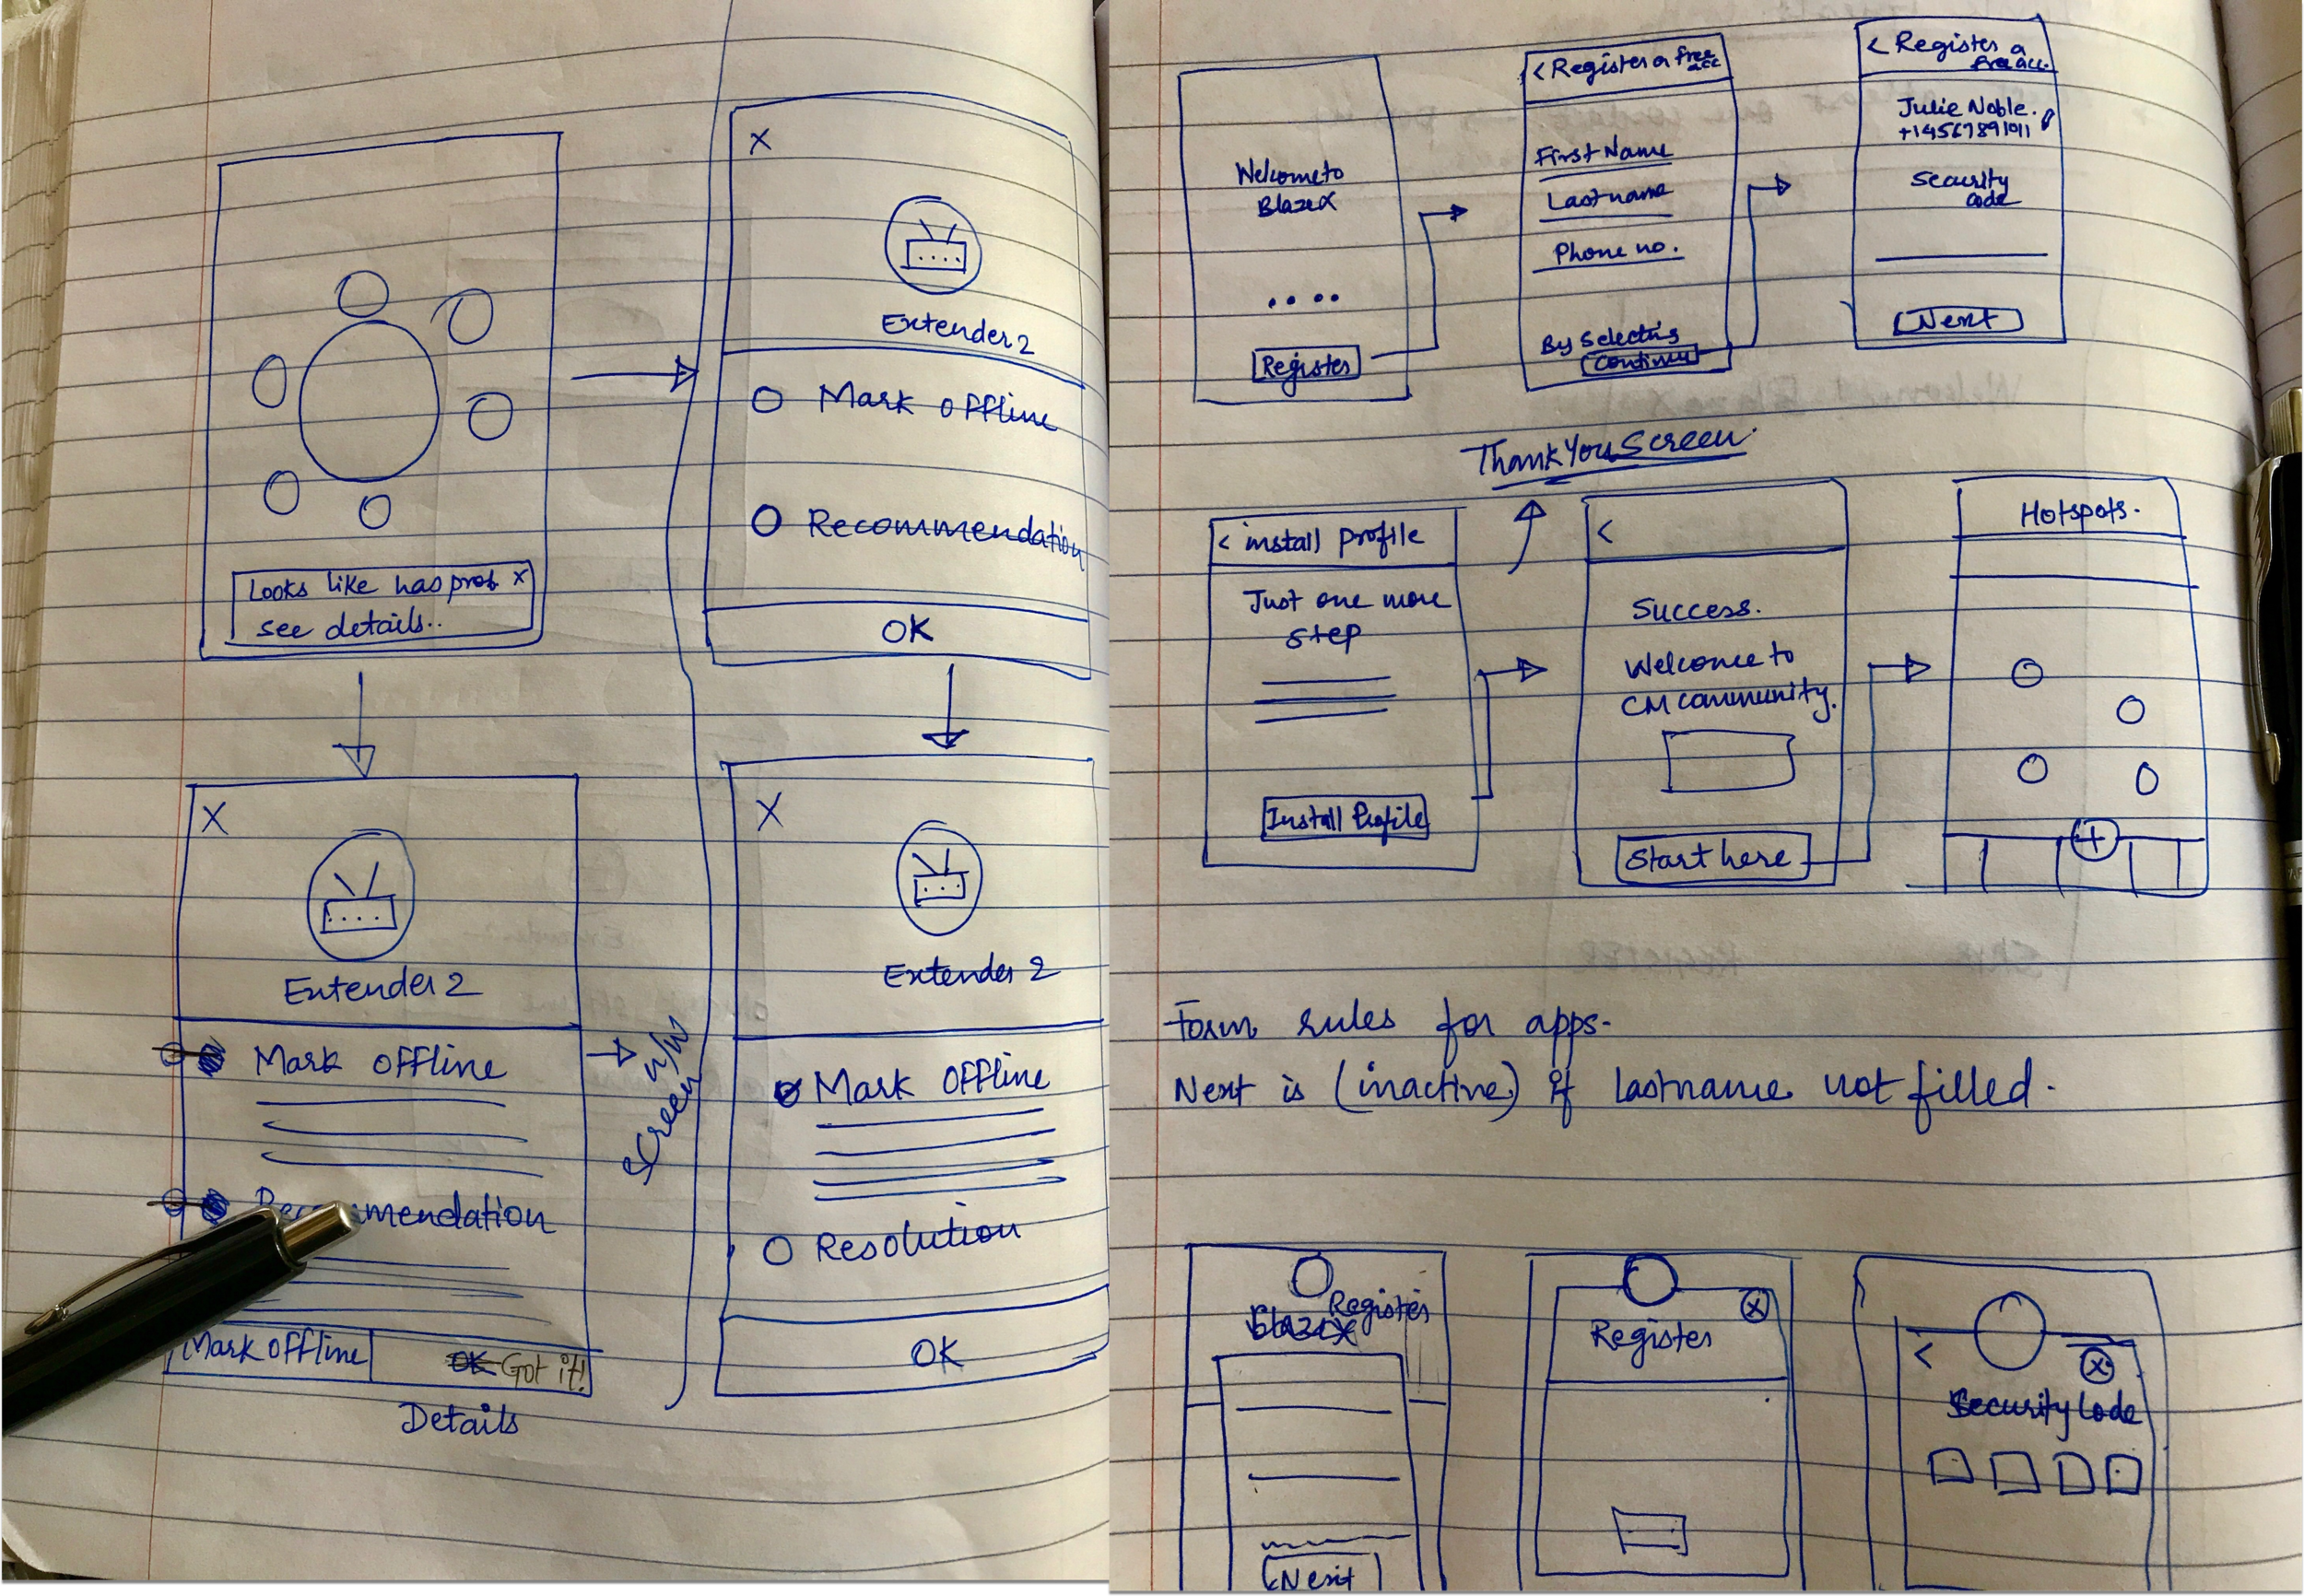 Looks like has prob x
see details..
X
Extender 2
Mark offline
Recommendation
OK
X
Extender 2
Mark offline
Recommendation
Mark offline
OK Got it!
Details
Screen
X
Extender 2
Mark offline
Resolution
OK
Welcome to
BlazeX
Register
< Register a free
acc
First Name
Last name
Phone no.
By Selectis
Continue
< Register a
free acc.
Julie Noble.
+14567891011
Security
code
Next
Thank You Screen
< install profile
Just one more
step
Install Profile
<
Success.
Welcome to
CM community.
Start here
Hotspots.
+
Form rules for apps.
Next is (inactive) if lastname not filled.
Register
BlazeX
Next
X
Register
<
X
Security Code